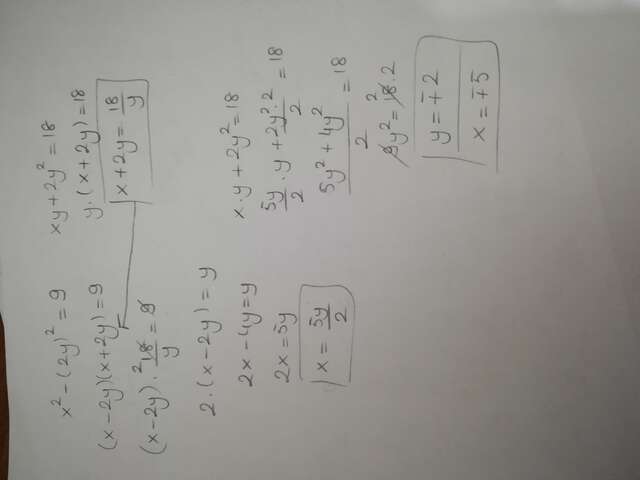 x² - (2y)² = 9
(x-2y)(x+2y)=9
(x-2y) · ²18/y = 9
2·(x-2y) = y
2x-4y=y
2x=5y
x = 5y/2
xy+2y² = 18
y·(x+2y)=18
x+2y = 18/y
x·y+2y²=18
5y/2 · y + 2y²·2/2 = 18
5y²+4y²/2 = 18
9y²=18²·2
y=∓2
x=∓5